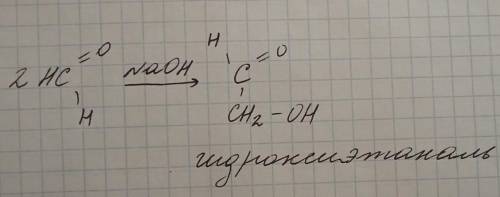 2 HC =O H NaOH → H C =O CH₂ – OH
гидроксиэтаналь